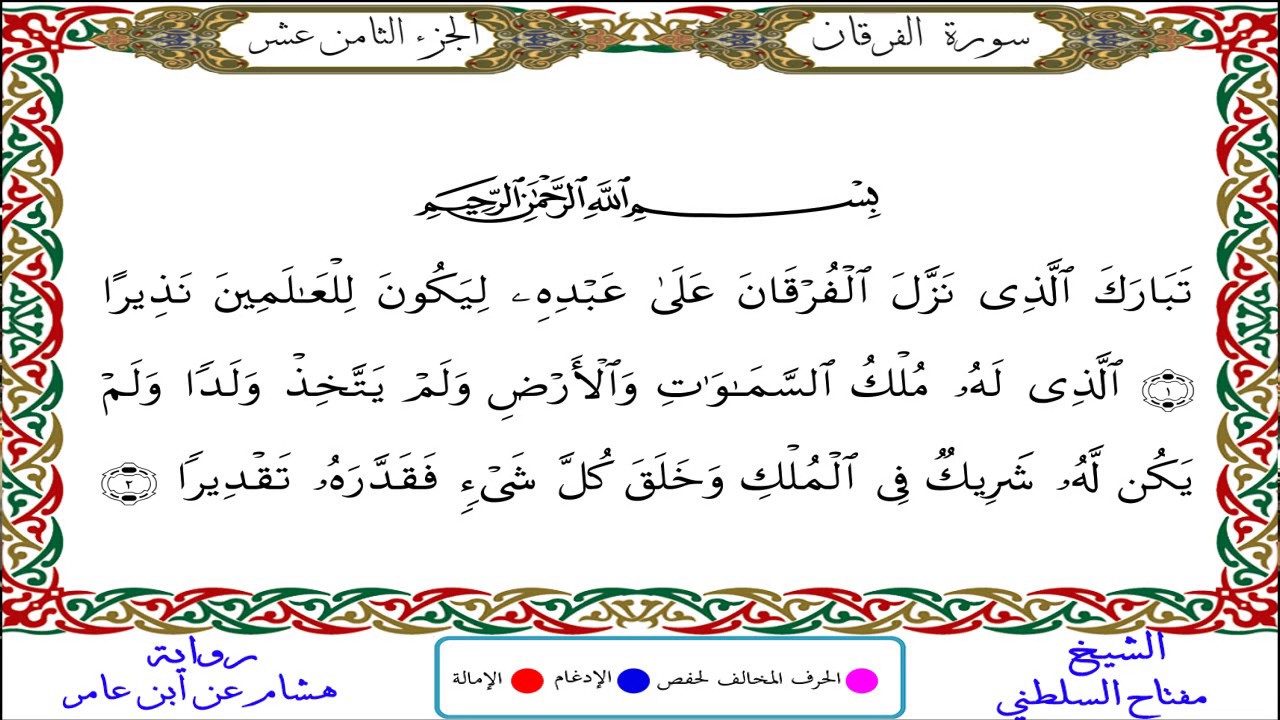 سورة الفرقان
الجزء الثامن عشر
بِسْمِ ٱللَّهِ ٱلرَّحْمَٰنِ ٱلرَّحِيمِ
تَبَارَكَ ٱلَّذِى نَزَّلَ ٱلْفُرْقَانَ عَلَىٰ عَبْدِهِۦ لِيَكُونَ لِلْعَٰلَمِينَ نَذِيرًا
۝١ ٱلَّذِى لَهُۥ مُلْكُ ٱلسَّمَٰوَٰتِ وَٱلْأَرْضِ وَلَمْ يَتَّخِذْ وَلَدًا وَلَمْ
يَكُن لَّهُۥ شَرِيكٌ فِى ٱلْمُلْكِ وَخَلَقَ كُلَّ شَىْءٍ فَقَدَّرَهُۥ تَقْدِيرًا ۝٢
الشيخ
مفتاح السلطني
الحرف المخالف لحفص
الإدغام
الإمالة
رواية
هشام عن ابن عامر